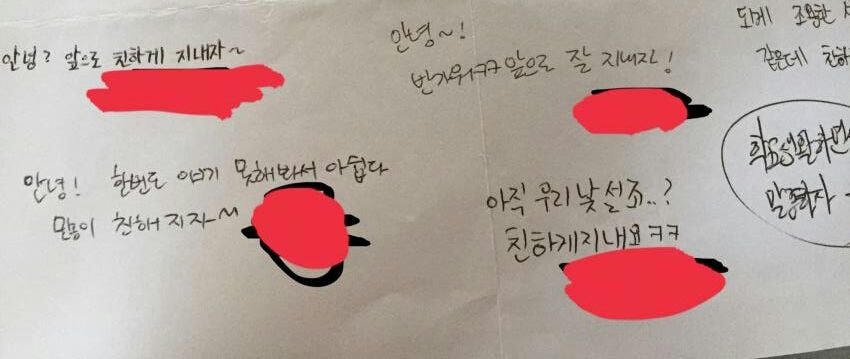 안녕? 앞으로 친하게 지내자~
안녕~!
반가워ㅋㅋ 앞으로 잘 지내자!
되게 조용한
같은데 친하
안녕! 한번도 얘기 못해봐서 아쉽다
친해지자~
아직 우리 낯설죠..?
친하게지내요ㅋㅋ